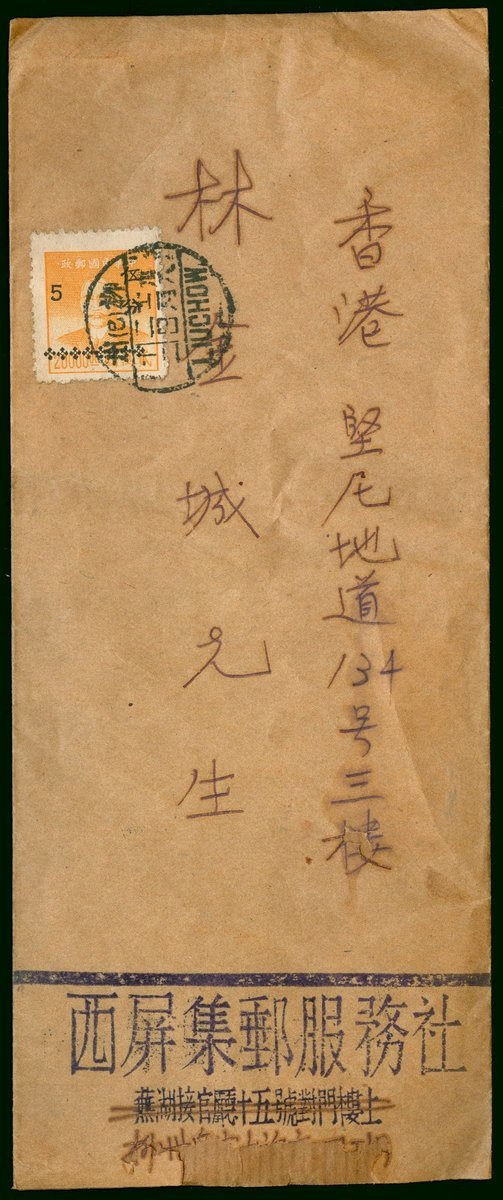 香港 堅尼地道134号三樓
林金城先生
5
20000
LIUCHOW
西屏集郵服務社
蕪湖接官廳十五號對門樓上